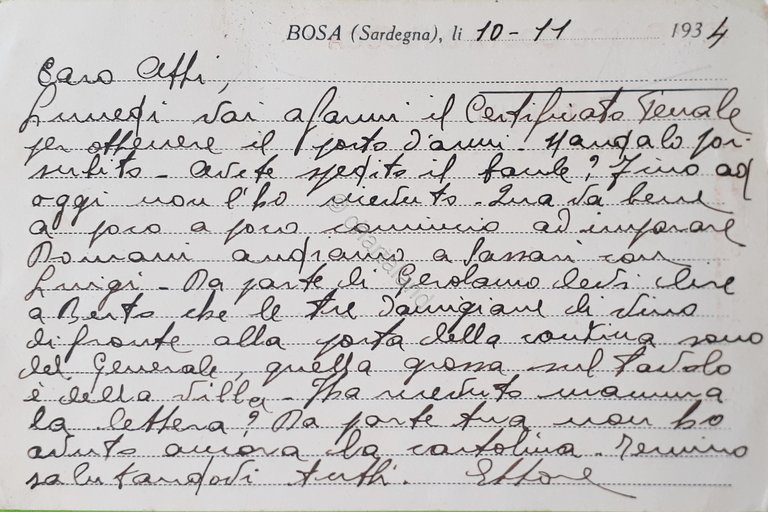 BOSA (Sardegna), lì 10-11 1934
Caro Atti,
Lunedì vai a farmi il Certificato Penale
per ottenere il porto d'armi. Mandalo poi
subito - Avete spedito il baule? Fino ad
oggi non l'ho ricevuto. Qua va bene
a poco a poco comincio ad imparare
Domani andiamo a Sassari con
Luigi - Da parte di Gerolamo devi dire
a Berto che le tre damigiane di vino
di fronte alla porta della cantina sono
del Generale, quella grossa sul tavolo
è della villa - Ha ricevuto mamma
la lettera? Da parte tua non ho
avuto ancora la cartolina. Termino
salutandovi tutti. Ettore